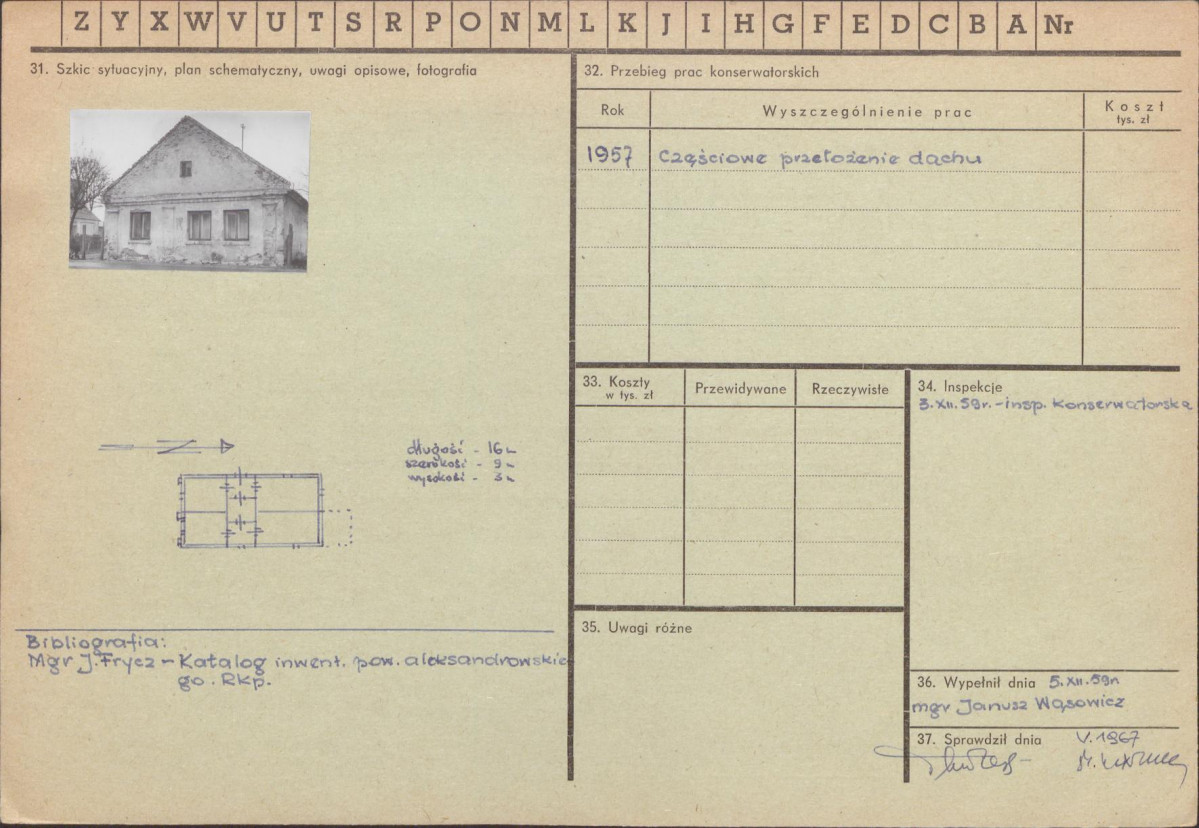 Z Y X W V U T S R P O N M L K J I H G F E D C B A Nr
31. Szkic sytuacyjny, plan schematyczny, uwagi opisowe, fotografia
długość - 16 m
szerokość - 9 m
wysokość - 3 m
Bibliografia:
Mgr J. Frycz - Katalog inwent. pow. aleksandrowskie
go. Rkp.
32. Przebieg prac konserwatorskich
Rok Wyszczególnienie prac Koszt
tys. zł
1957 Częściowe przełożenie dachu
33. Koszty
w tys. zł
Przewidywane Rzeczywiste
34. Inspekcje
3.XII.59r. - insp. konserwatorska
35. Uwagi różne
36. Wypełnił dnia 5.XII.59r
mgr Janusz Wąsowicz
37. Sprawdził dnia V.1967